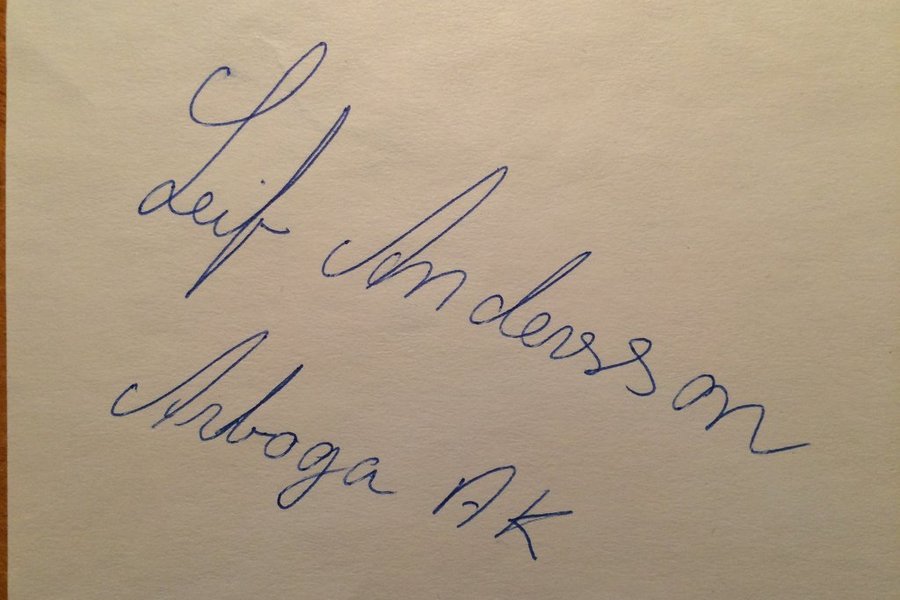 Leif Andersson
Arboga AK